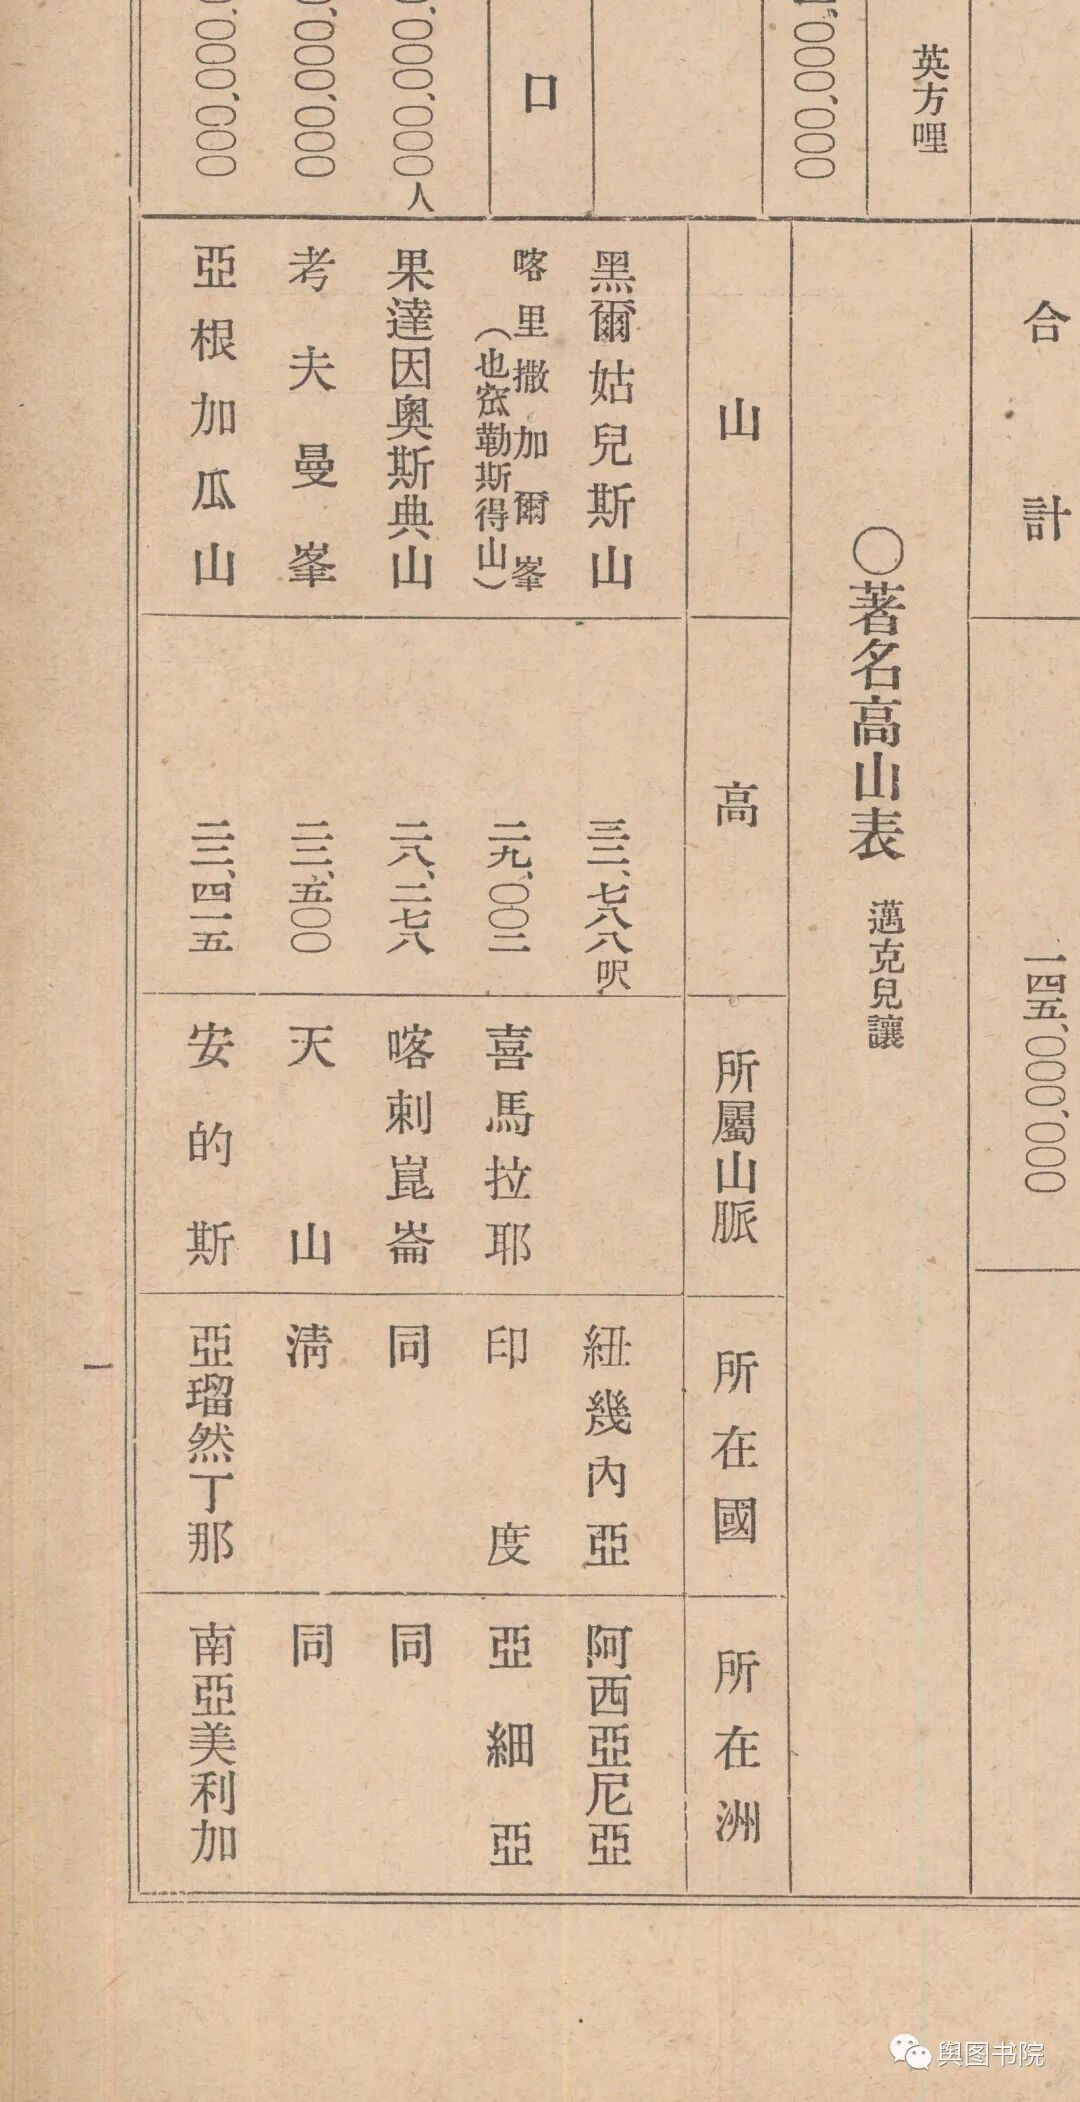 合計 一四五、〇〇〇、〇〇〇
英方哩
〇著名高山表 邁克兒讓
〇〇〇、〇〇〇
山 高 所屬山脈 所在國 所在洲
黑爾姑兒斯山 三二、七八八呎 紐幾內亞 阿西亞尼亞
口
喀里撒加爾峯 二九、〇〇二 喜馬拉耶 印度 亞細亞
(也窊勒斯得山)
〇〇〇、〇〇〇人
果達因奧斯典山 二八、二七八 喀刺崑崙 同 同
〇〇〇、〇〇〇
考夫曼峯 二三、五〇〇 天山 淸 同
〇〇〇、〇〇〇
亞根加瓜山 二三、四一五 安的斯 亞瑠然丁那 南亞美利加
一
舆图书院